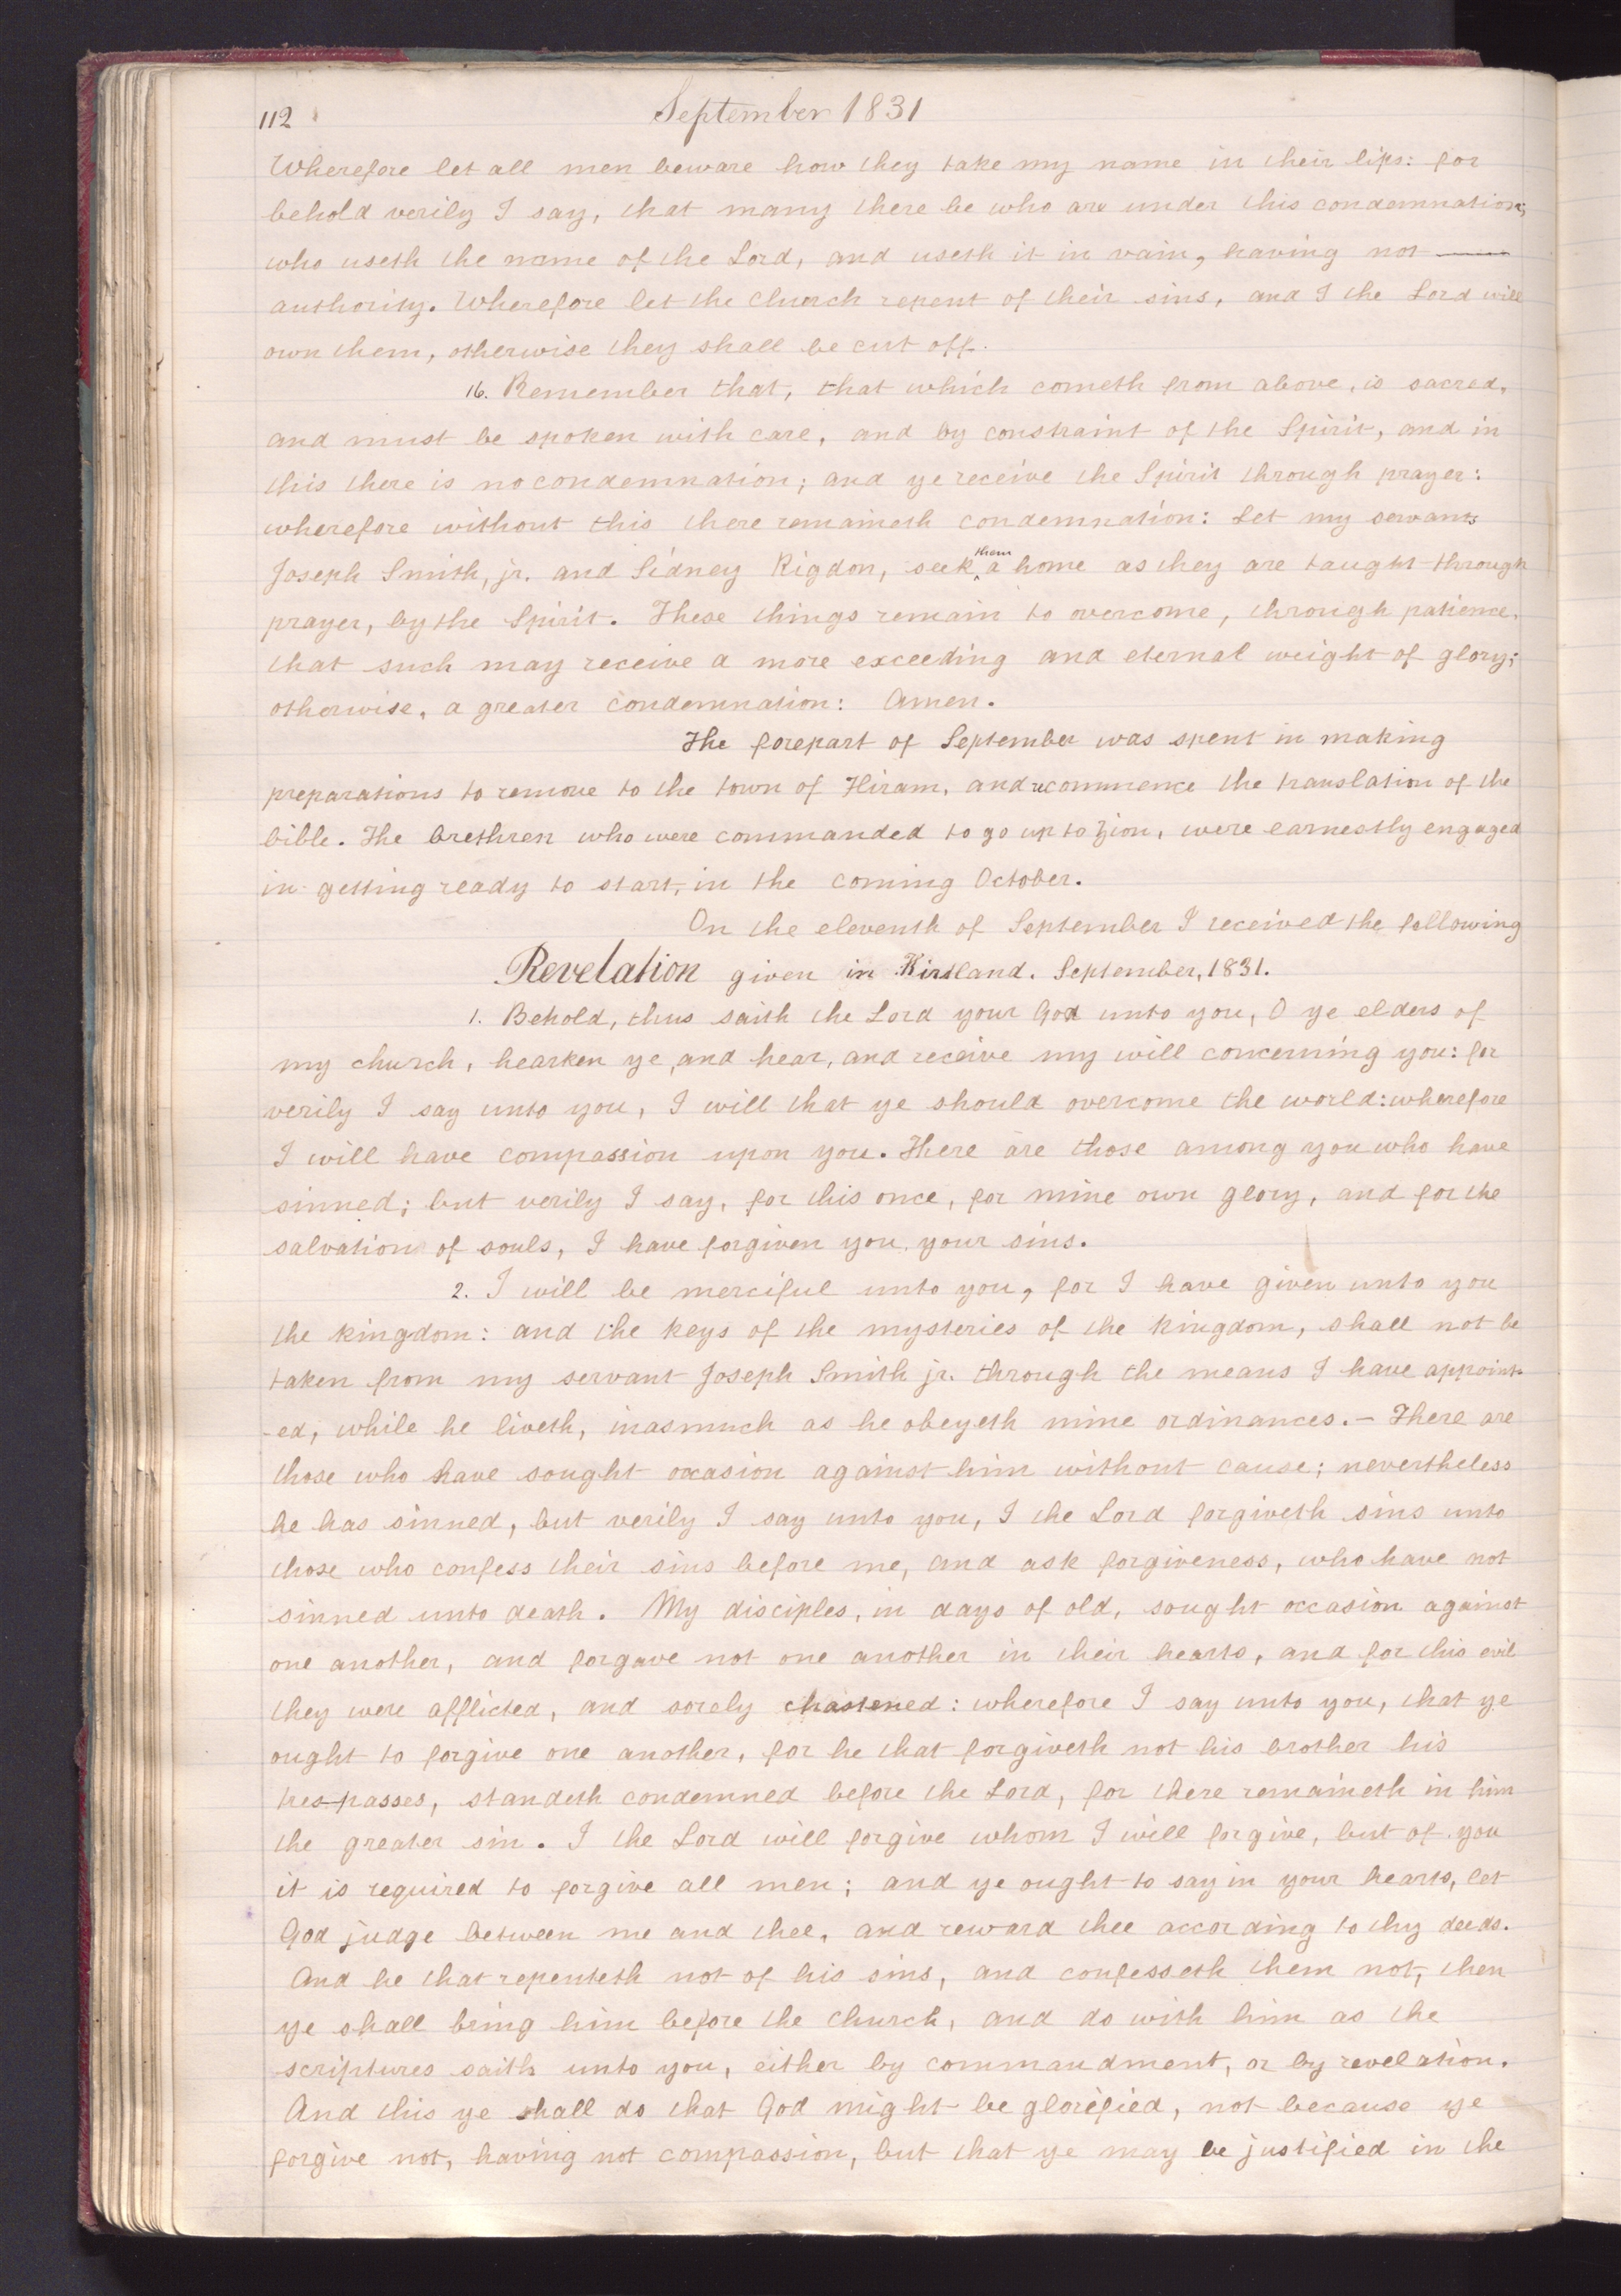 112
September 1831
Wherefore let all men beware how they take my name in their lips: for
behold verily I say, that many there be who are under this condemnation;
who useth the name of the Lord, and useth it in vain, having not ——
authority. Wherefore let the church repent of their sins, and I the Lord will
own them, otherwise they shall be cut off.
16. Remember that, that which cometh from above, is sacred,
and must be spoken with care, and by constraint of the Spirit, and in
this there is no condemnation; and ye receive the Spirit through prayer:
wherefore without this there remaineth condemnation: Let my servants
Joseph Smith, jr. and Sidney Rigdon, seek ^them a home as they are taught through
prayer, by the Spirit. These things remain to overcome, through patience,
that such may receive a more exceeding and eternal weight of glory;
otherwise, a greater condemnation: Amen.
The forepart of September was spent in making
preparations to remove to the town of Hiram, and recommence the translation of the
bible. The brethren who were commanded to go up to Zion, were earnestly engaged
in getting ready to start, in the coming October.
On the eleventh of September I received the following
Revelation given in Kirtland. September, 1831.
1. Behold, thus saith the Lord your God unto you, O ye elders of
my church, hearken ye, and hear, and receive my will concerning you: for
verily I say unto you, I will that ye should overcome the world: wherefore
I will have compassion upon you. There are those among you who have
sinned; but verily I say, for this once, for mine own glory, and for the
salvation of souls, I have forgiven you your sins.
2. I will be merciful unto you, for I have given unto you
the kingdom: and the keys of the mysteries of the kingdom, shall not be
taken from my servant Joseph Smith jr. through the means I have appoint-
-ed, while he liveth, inasmuch as he obeyeth mine ordinances.— There are
those who have sought occasion against him without cause; nevertheless
he has sinned, but verily I say unto you, I the Lord forgiveth sins unto
those who confess their sins before me, and ask forgiveness, who have not
sinned unto death. My disciples, in days of old, sought occasion against
one another, and forgave not one another in their hearts, and for this evil
they were afflicted, and sorely chastened: wherefore I say unto you, that ye
ought to forgive one another, for he that forgiveth not his brother his
trespasses, standeth condemned before the Lord, for there remaineth in him
the greater sin. I the Lord will forgive whom I will forgive, but of you
it is required to forgive all men; and ye ought to say in your hearts, let
God judge between me and thee, and reward thee according to thy deeds.
And he that repenteth not of his sins, and confesseth them not, then
ye shall bring him before the church, and do with him as the
scriptures saith unto you, either by commandment, or by revelation.
And this ye shall do that God might be glorified, not because ye
forgive not, having not compassion, but that ye may be justified in the